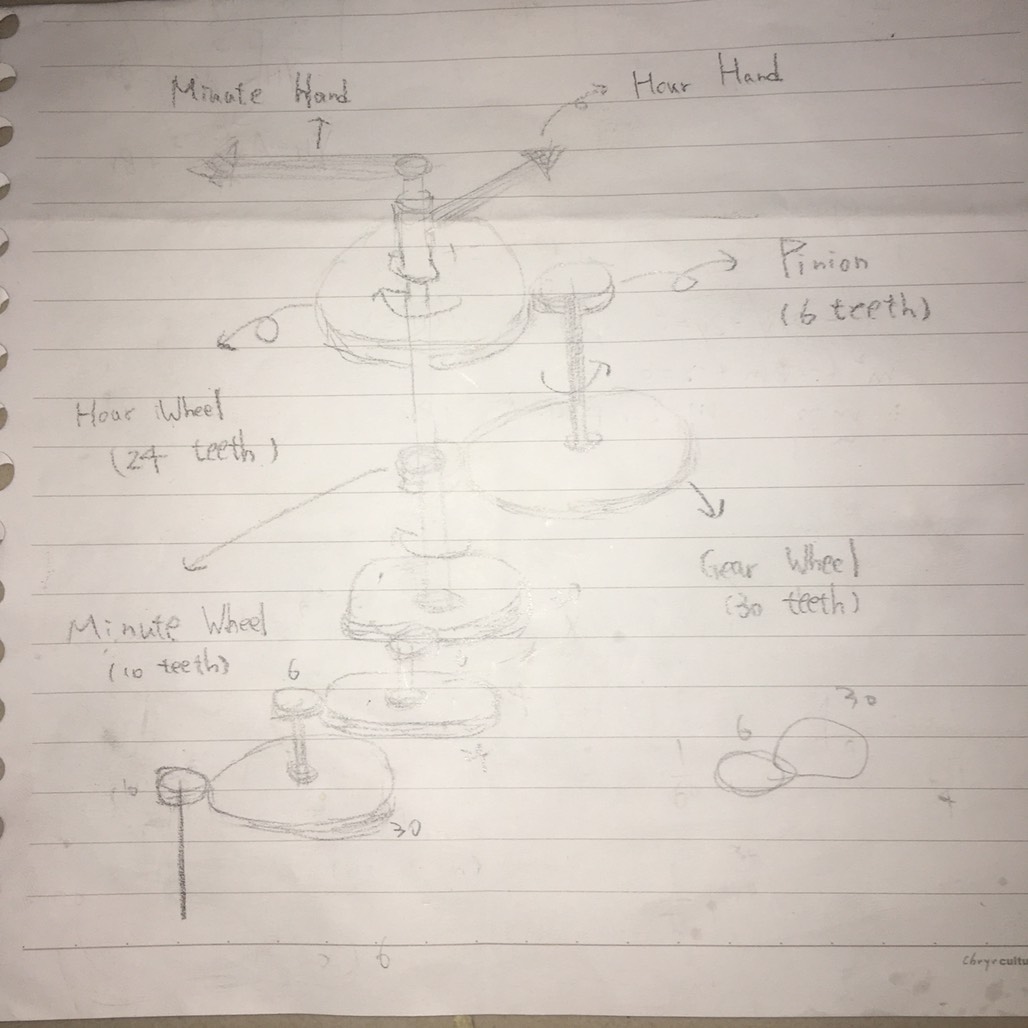 Minute Hand
Hour Hand
Pinion
(6 teeth)
Hour Wheel
(24 teeth)
Gear Wheel
(30 teeth)
Minute Wheel
(10 teeth)
6
30
6
30
6